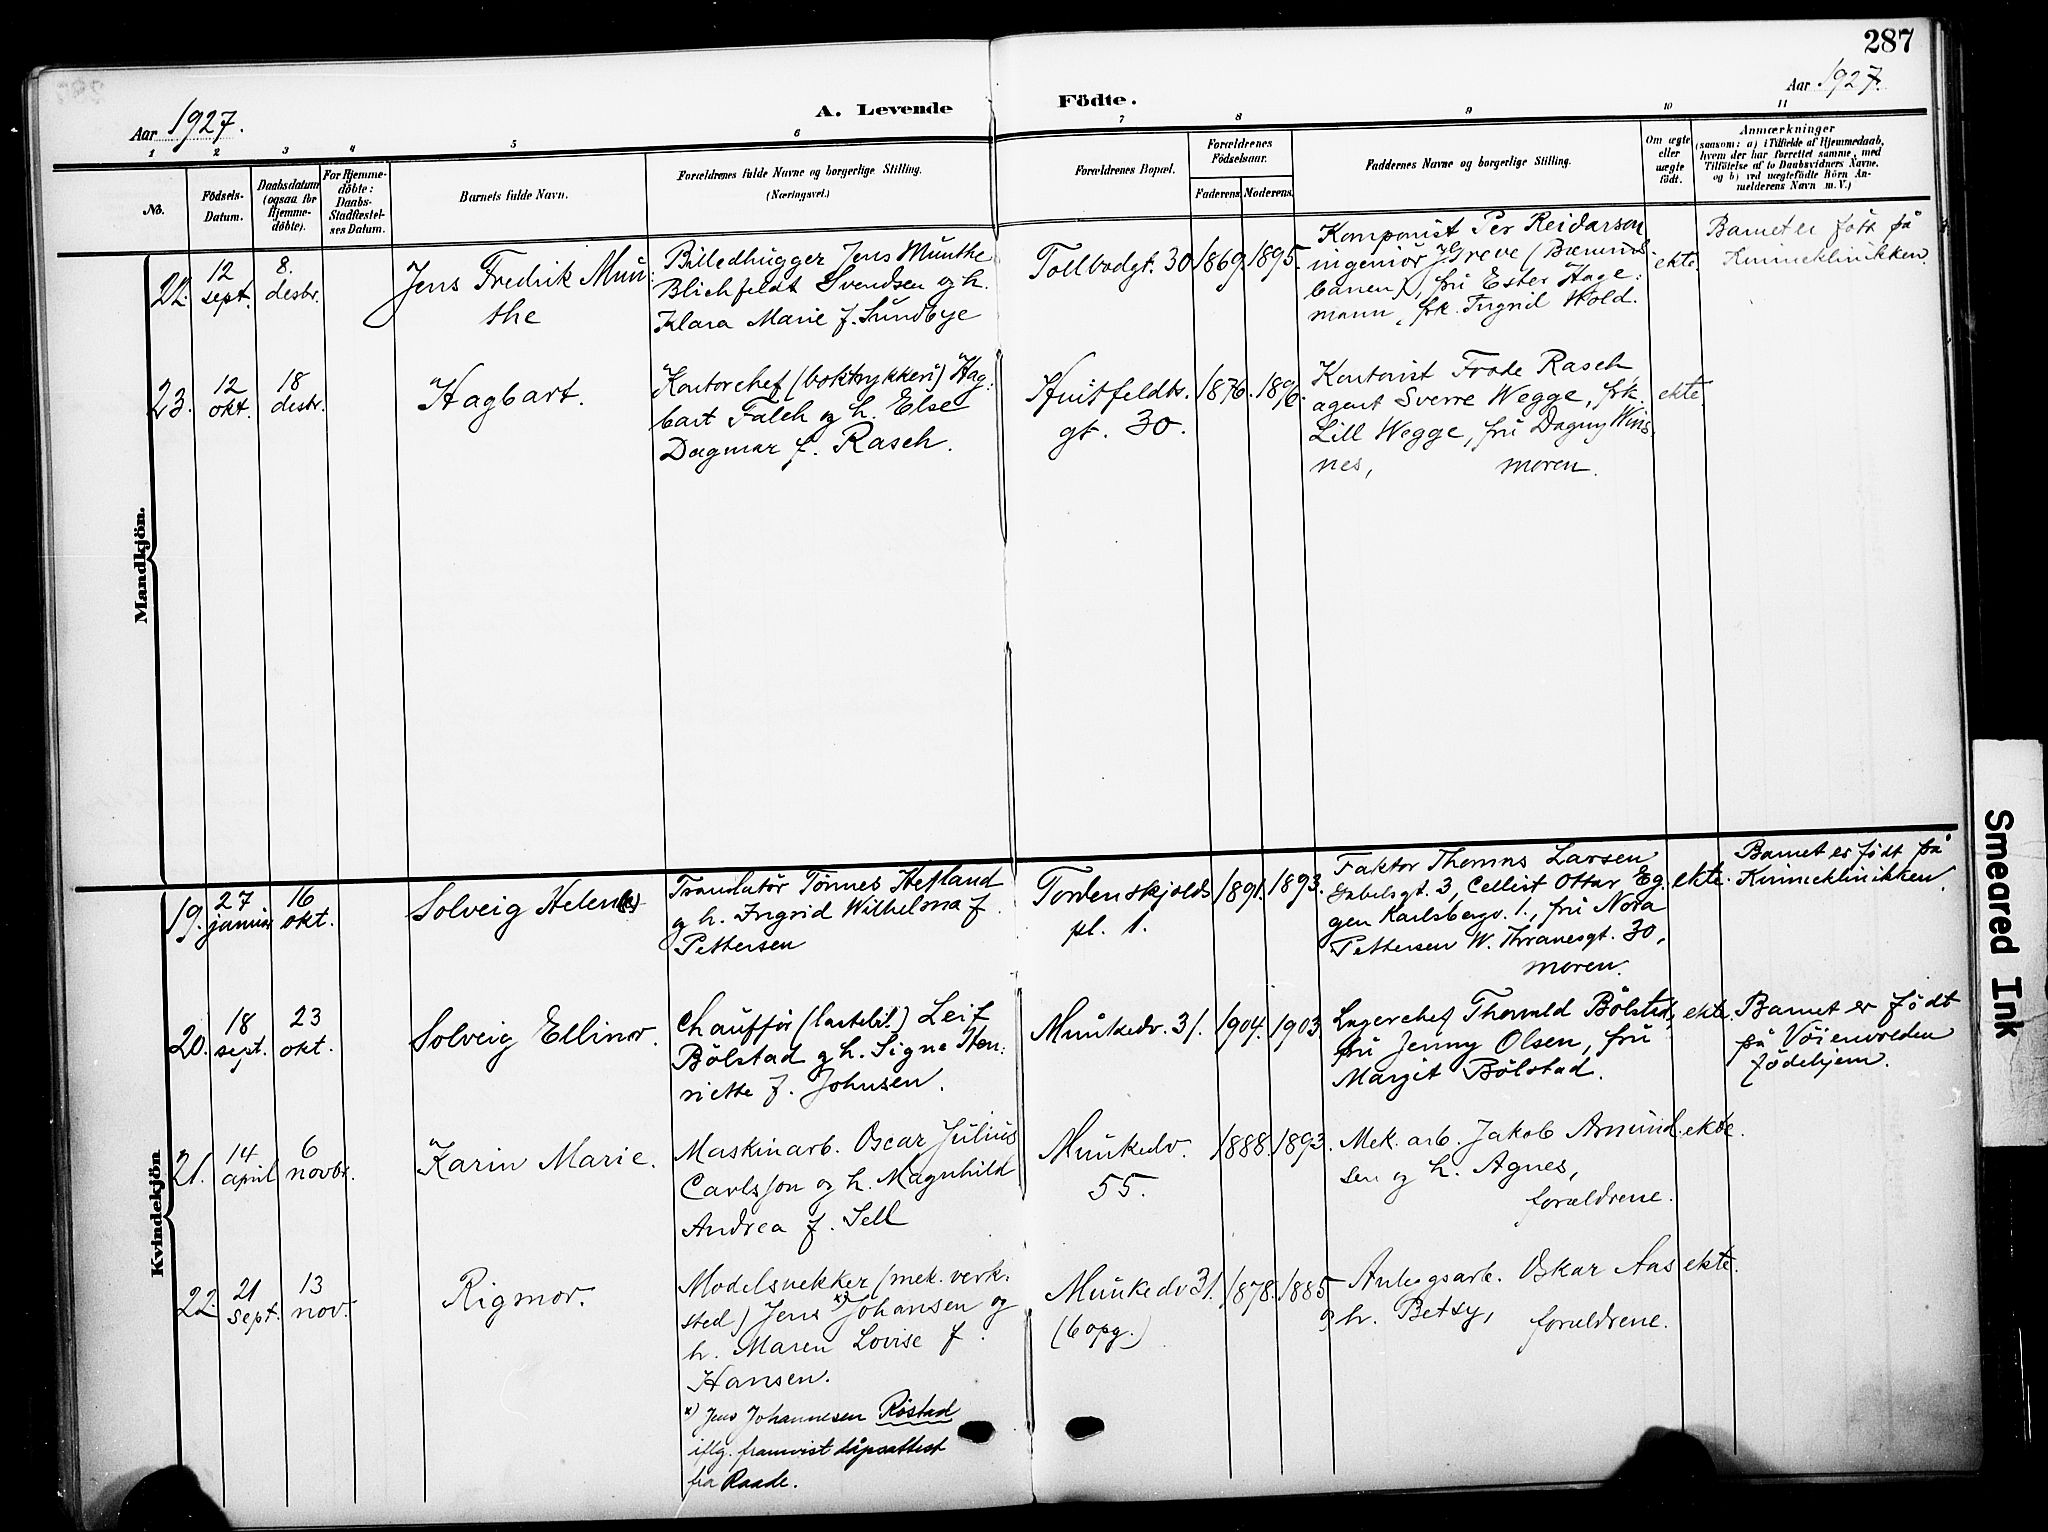 287
Aar 1927.
A. Levende Födte.
Aar 1927.
1 2 3 4 5 6 7 8 9 10 11
No.
Födsels-
Datum.
Daabsdatum
(ogsaa for
Hjemme-
döbte).
For Hjemme-
döbte:
Daabs-
Stadfæstel-
ses Datum.
Barnets fulde Navn.
Forældrenes fulde Navne og borgerlige Stilling.
(Næringsvei.)
Forældrenes Bopæl.
Forældrenes
Födselsaar.
Faderens Moderens.
Faddernes Navne og borgerlige Stilling.
Om ægte
eller
uægte
födt.
Anmærkninger
(saasom: a) i Tilfælde af Hjemmedaab,
hvem der har forrettet samme, med
Tilföielse af to Daabsvidners Navne.
og b) ved uægtefödte Börn An-
melderens Navn m. V.)
Mandkjön.
22. 12 sept. 8. desbr.
Jens Fredrik Mun:
the
Billedhugger Jens Munthe
Blichfeldt Svendsen og h.
Klara Marie f. Sundbye
Tollbodgt. 30 1869. 1895.
Komponist Per Reidarson
ingeniør Greve (Bærums
banen), fru Ester Hage:
mann, frk. Ingrid Wold.
ekte.
Barnet er født på
Kvinneklinikken.
23. 12 okt. 18 desbr.
Hagbart.
Kontorchef (boktrykkeri) Hag:
bart Falch og h. Else
Dagmar f. Rasch.
Huitfeldts.
gt. 30.
1876. 1896.
Kontorist Frode Rasch,
agent Sverre Wegge, frk.
Lill Wegge, fru Dagny Wins
nes, moren.
ekte.
Kvindekjön
19. 27 januar 16 okt.
Solveig Helen(e)
Translatør Tønnes Hefland
og h. Ingrid Wilhelma f.
Pettersen
Tordenskjolds
pl. 1.
1891. 1893.
Faktor Thomas Larsen
Gabelsgt. 3, Cellist Ottar Eg
gen Karlsbergv. 1., fru Nora
Pettersen W. Thranesgt. 30,
moren.
ekte.
Barnet er født på
Kvinneklinikken.
20. 18 sept. 23 okt.
Solveig Ellinor.
Chauffør (lastebil.) Leif
Bölstad og h. Signe Hen:
riette f. Johnsen.
Munkedv. 31. 1904. 1903.
Lagerchef Thorvald Bölstad,
fru Jenny Olsen, fru
Margit Bölstad.
ekte.
Barnet er født
på Vöienvolden
fødehjem.
21. 14 april 6 novbr.
Karin Marie.
Maskinarb. Oscar Julius
Carlsson og h. Magnhild
Andrea f. Sell
Munkedv.
55.
1888. 1893.
Mek. arb. Jakob Amund
sen og h. Agnes,
foreldrene.
ekte.
22. 21 sept. 13 nov.
Rigmor.
Modelsnekker (mek. verk.
sted) Jens x) Johansen og
h. Maren Lovise f.
Hansen.
x) Jens Johannesen Röstad
iflg. framvist dåpsattest
fra Raade.
Munkedv 31.
(6 opg.)
1878. 1885
Anleggsarb. Oskar Aas
og h. Betsy, foreldrene.
ekte.
Smeared Ink